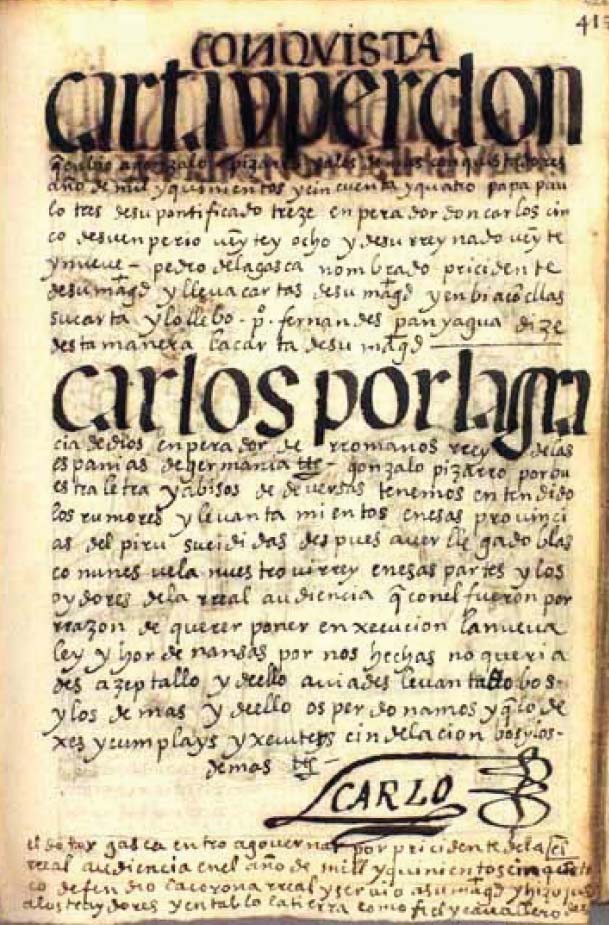 415
CONQVISTA
carta y perdon
q̄ enbio a gonzalo pizarro y a los demas conquistadores
año de mil y quinientos y cincuenta y quatro papa pau
lo tres de su pontificado treze enperador don carlos cin
co de su enperio veyte y ocho y de su rreynado veyte
y nueve – pedro de la gasca nombrado pricidente
de su mag̃d y lleva cartas de su mag̃d y enbia cō ellas
su carta y lo llebo · pº · fernandes panyagua dize
desta manera la carta de su mag̃d
carlos por la gra
cia de dios enperador de rromanos rrey de las
espanias de germania etc – gonzalo pizarro por bu
estra letra y abisos de deversas tenemos entendido
los rumores y levantamientos en esas provinci
as del piru suсididas despues aver llegado blas
co nunes vela nuestro virrey en esas partes y los
oydores de la rreal audiencia q̄ con el fueron por
rrazon de querer poner en xecucion la nueva
ley y hordenansas por nos hechas no queria
des azeptallo y de ello aviades levantado bos
y los demas y de ello os perdonamos y q̄ lo de
xes y cumplays y xecuteys cin delacion bos y los
demas etc –
CARLO
el dotor gasca entro a governar por pricidente de la
real audiencia en el año de mill y quinientos
co defendio la corona rreal y servio a su mag̃d y hizo
a los traydores y entablo la tierra como fiel y cavallero